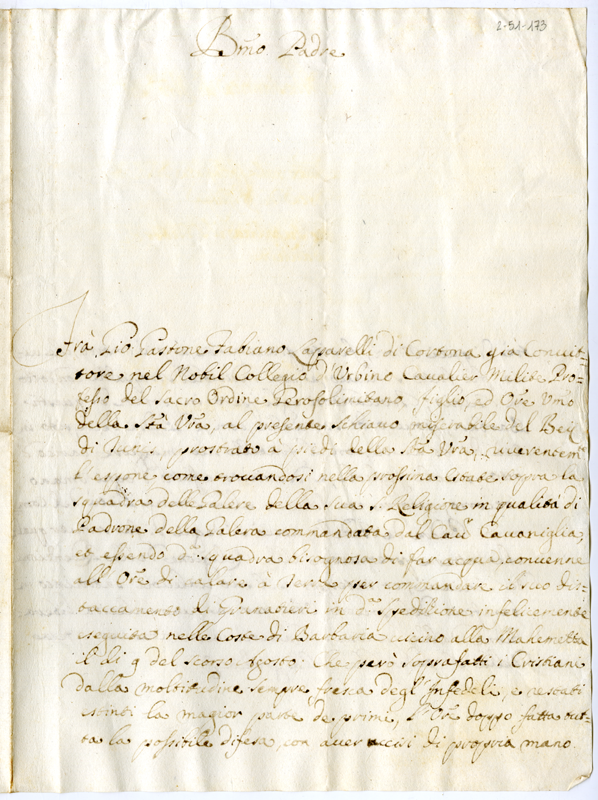 2-51-173
B.mo Padre
Frà Pio Gastone Fabiano Lapparelli di Cortona già Convit=
tore nel Nobil Collegio d'Urbino Cavalier Milite Pro=
fesso del Sacro Ordine Gerosolimitano, figlio, ed Ore Vmo
della Stà Vrã, al presente Schiavo miserabile del Bei
di Tunis, prostrato à piedi della Stà Vrã, riverentem.e
l'espone come trovandosi nella prossima Estate sopra la
squadra delle Galere della sua s. Religione in qualità di
Padrone della Galera commandata dal Cau.r Cavaniglia,
et essendo d.a squadra bisognosa di far acqua, convenne
all'Ore di calare à terra per commandare il suo dis=
taccamento di Granatieri in d.a Spedizione infelicemente
seguita nelle Coste di Barbaria vicino alla Mahemetta
il dì 9 del scorso Agosto. Che però soprafatti i Cristiani
dalla moltitudine sempre fresca degl'Infedeli, e restati
estinti la magior parte de primi, l'Ore doppo fatta tut=
ta la possibile difesa, con aver uccisi di propria mano